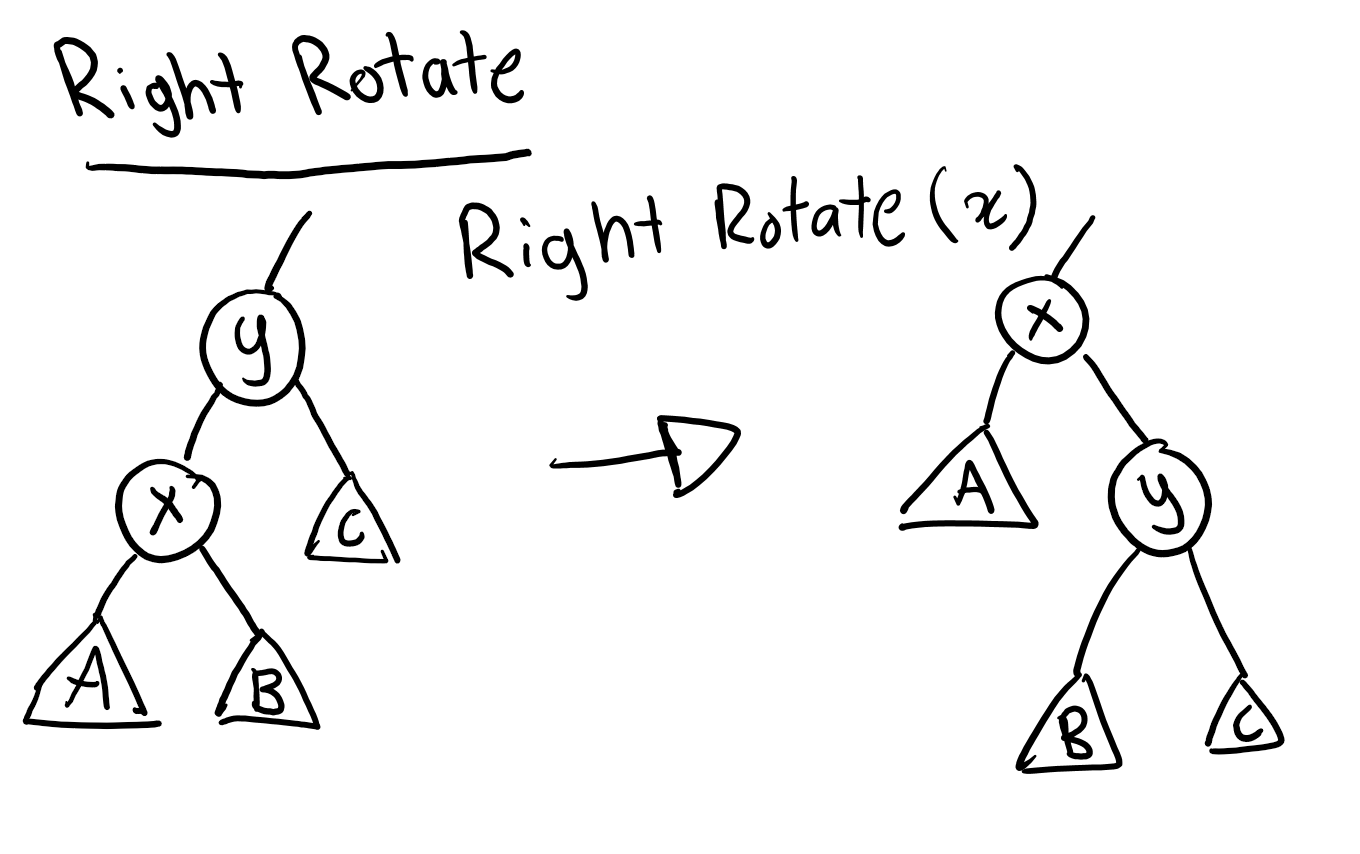 Right Rotate
Right Rotate (x)
y
x
C
A
B
x
A
y
B
C